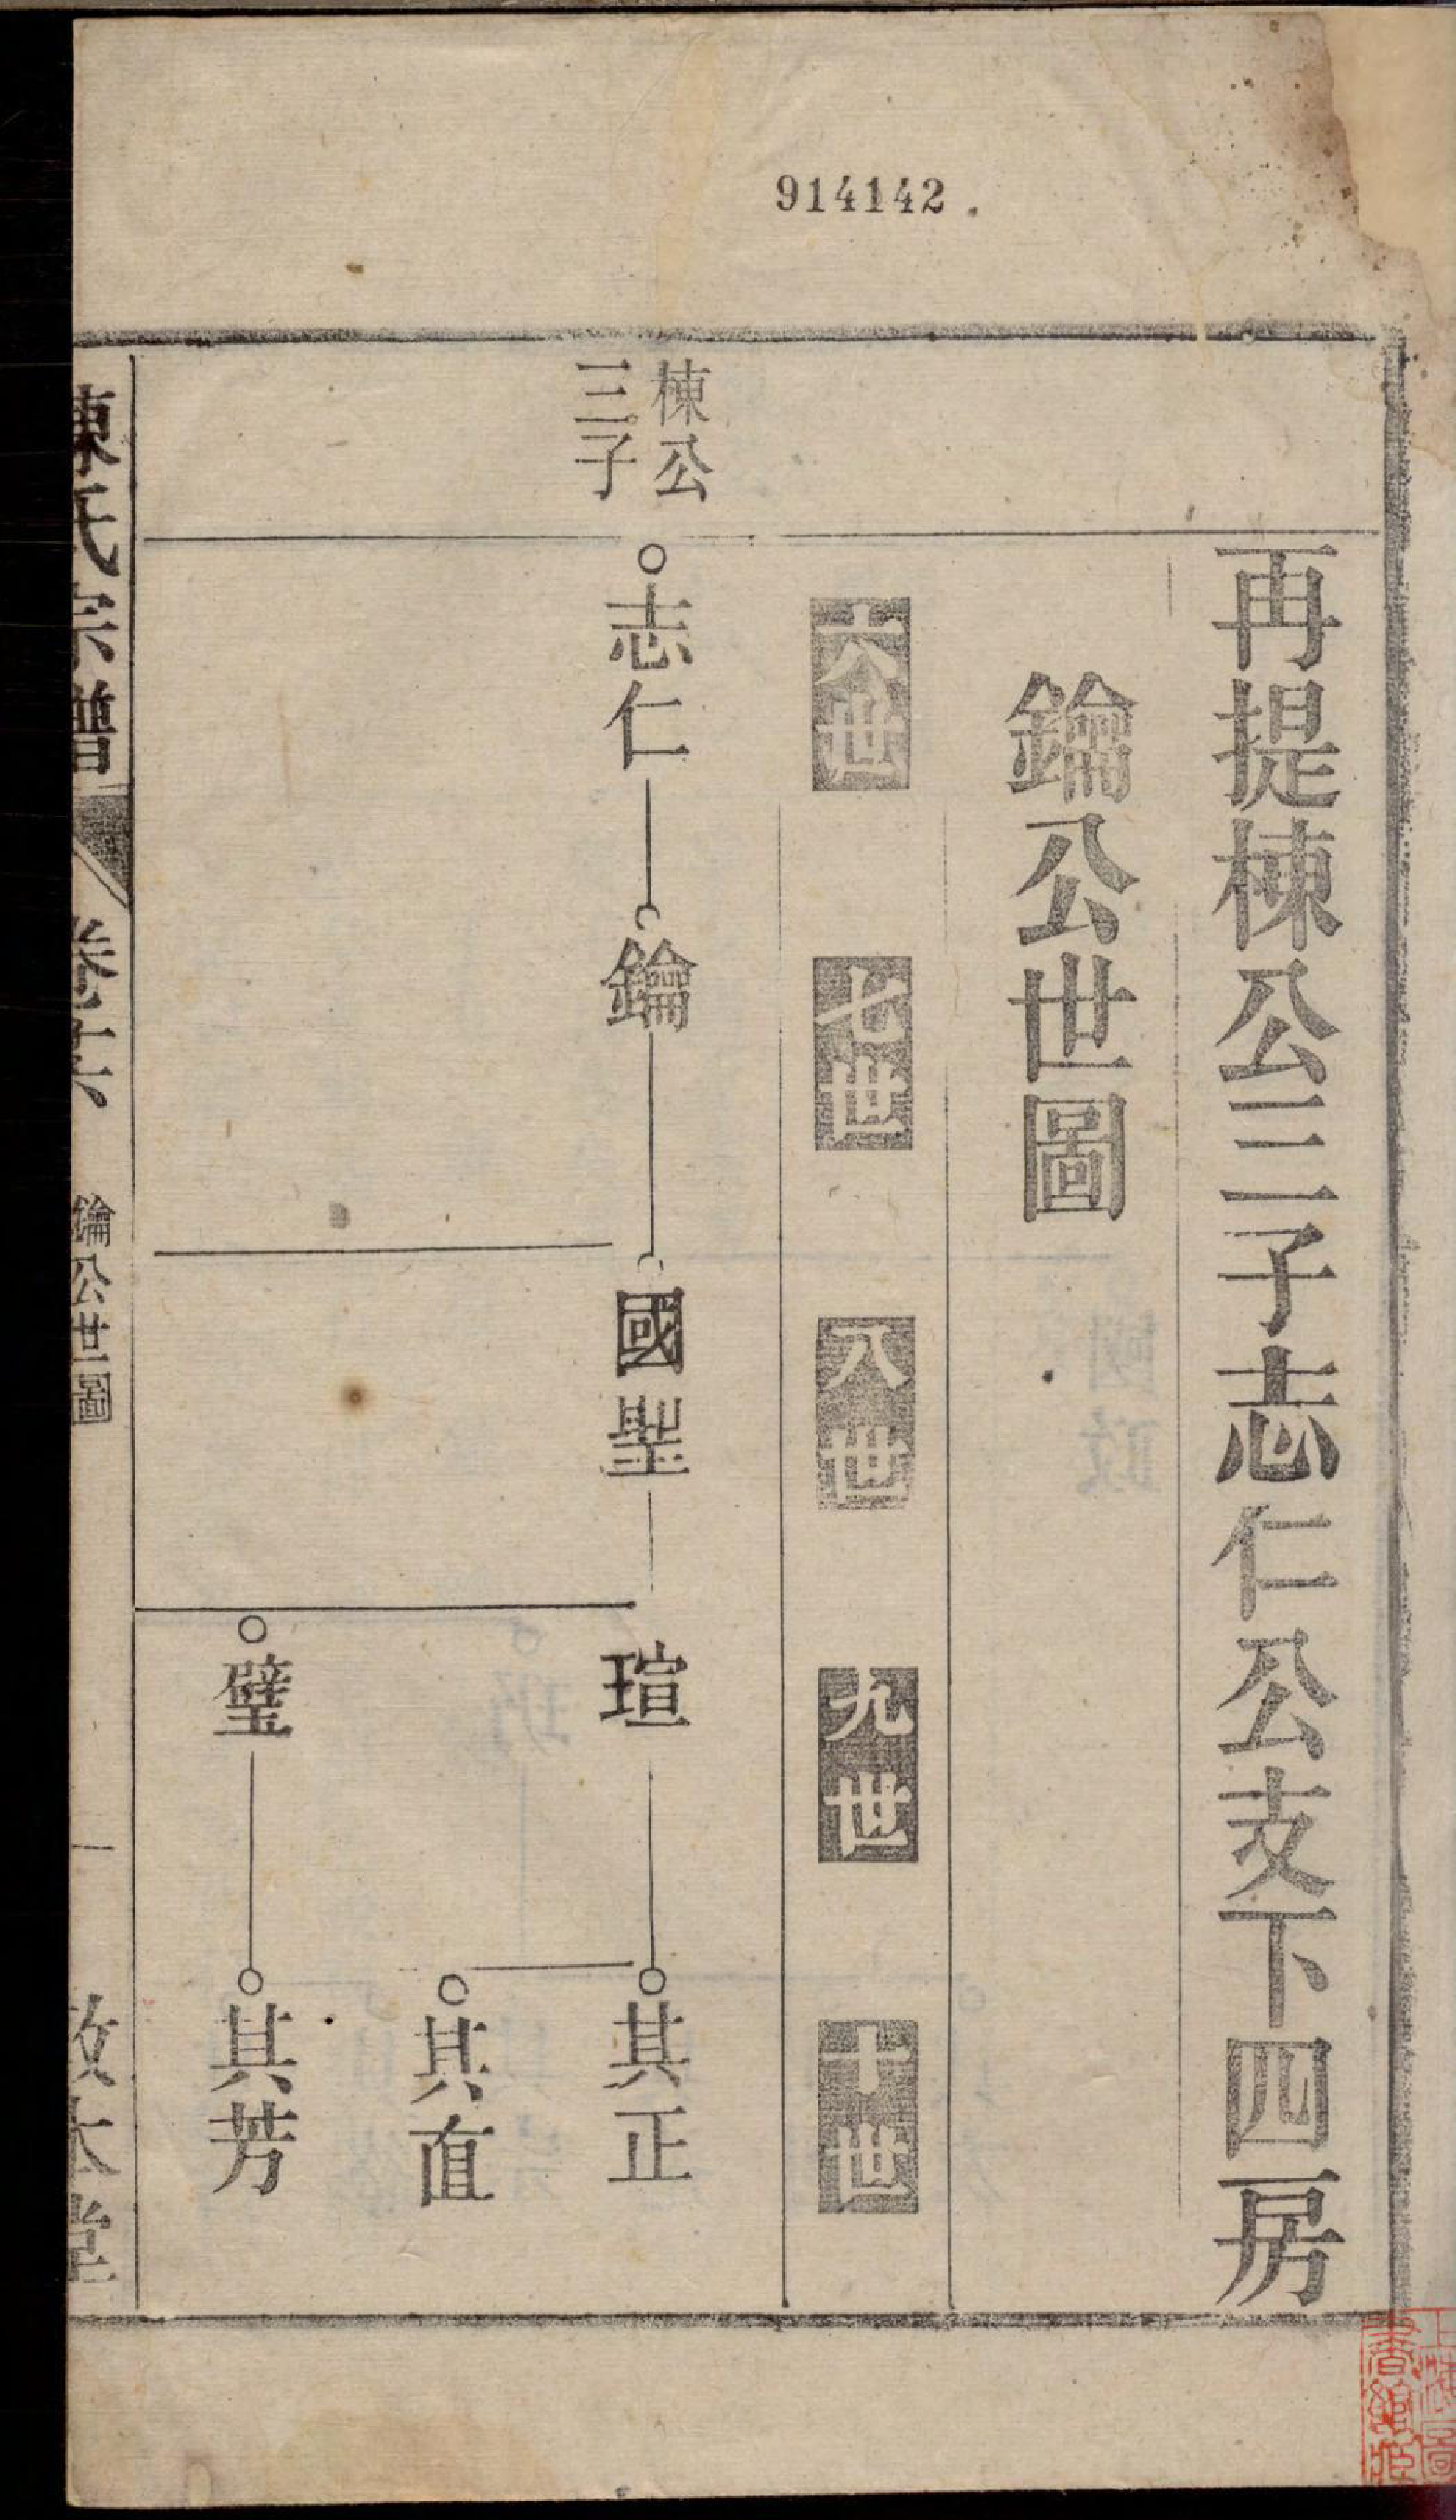 914142
再提棟公三子志仁公支下四房
鑰公世圖
六世
七世
八世
九世
十世
棟公
三子
志仁
鑰
國聖
瑄
其正
其直
璧
其芳
陳氏宗譜
卷六
鑰公世圖
一
敦本堂
上海圖
書館藏